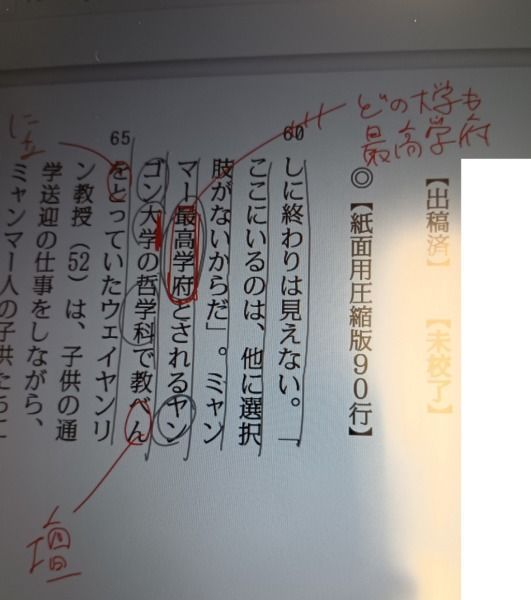 【出稿済】 【未校了】
◎【紙面用圧縮版90行】
どの大学も
最高学府
60
しに終わりは見えない。「
ここにいるのは、他に選択
肢がないからだ」。ミャン
マー最高学府とされるヤン
ゴン大学の哲学科で教べん
65
をとっていたウェイヤンリ
ン教授(52)は、子供の通
学送迎の仕事をしながら、
ミャンマー人の子供たちに
壇
に立